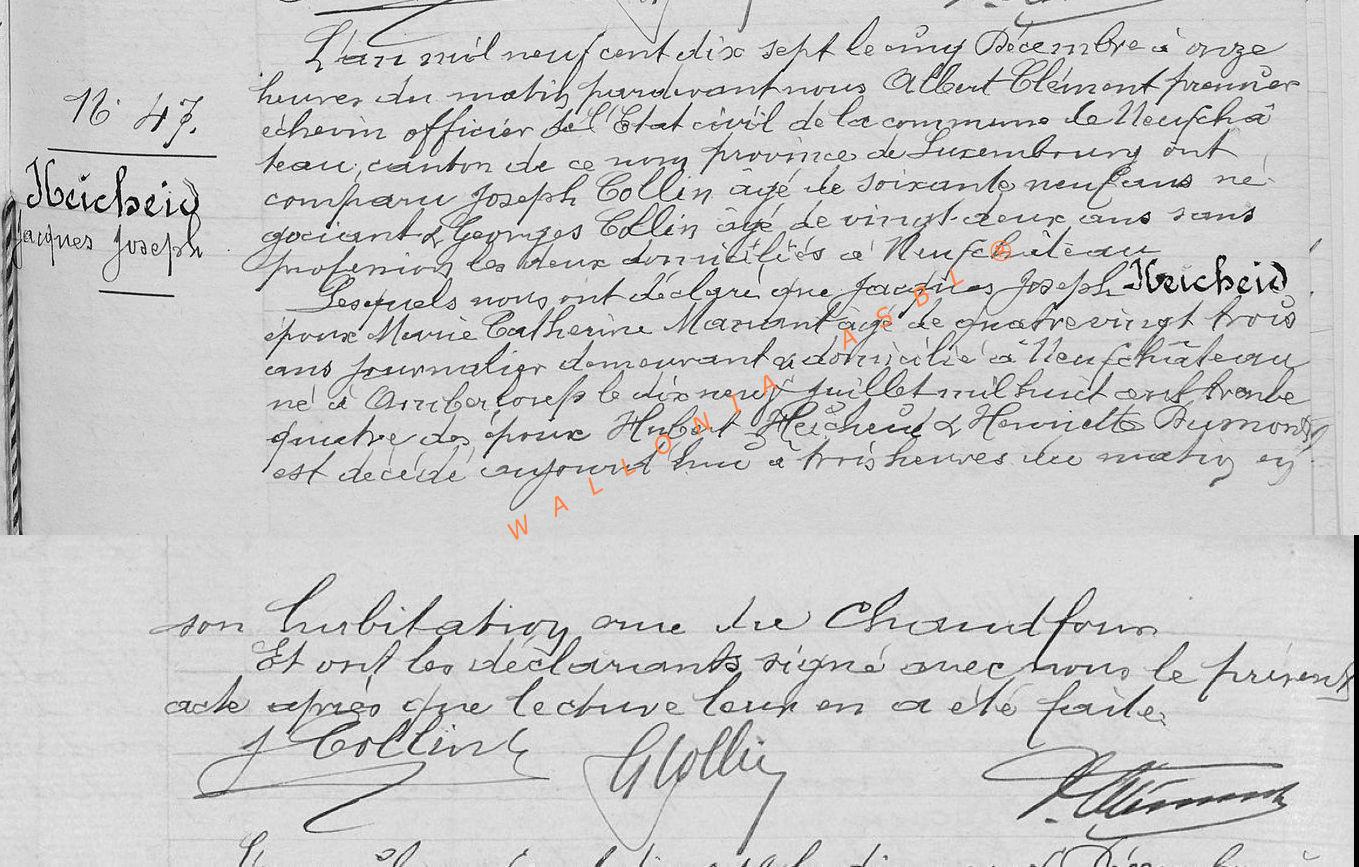 N° 47.
Heicheid
Jacques Joseph
L'an mil neuf cent dix sept le cinq Décembre à onze
heures du matin pardevant nous Albert Clément premier
échevin officier de l'Etat civil de la commune de Neufchâ
teau, canton de ce nom province de Luxembourg ont
comparu Joseph Collin âgé de soixante neuf ans né
gociant & Georges Collin âgé de vingt-deux ans sans
profession les deux domiciliés à Neufchâteau
Lesquels nous ont déclaré que Jacques Joseph Heicheid
époux Marie Catherine âgé de quatre vingt trois
ans journalier demeurant & domicilié à Neufchâteau
né à le dix neuf juillet mil huit cent trente
quatre des époux Hubert Heicheid & Henriette Dumont
est décédé aujourd'hui à trois heures du matin en
son habitation rue du Chaudfour
Et ont les déclarants signé avec nous le présent
acte après que lecture leur en a été faite.
J Collin
G Collin
A. Clément
WALLONIA ASBL ®